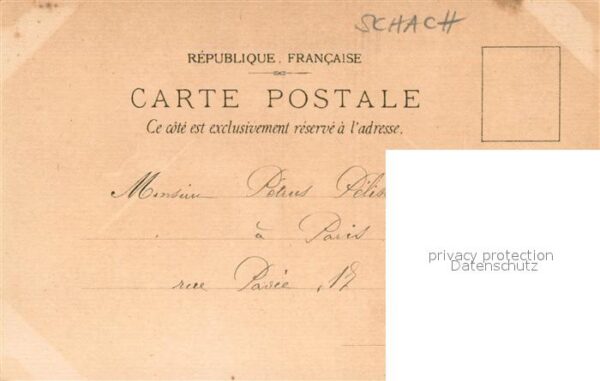 SCHACH
RÉPUBLIQUE FRANÇAISE
CARTE POSTALE
Ce côté est exclusivement réservé à l'adresse.
Monsieur Pétrus
à Paris
rue
privacy protection
Datenschutz